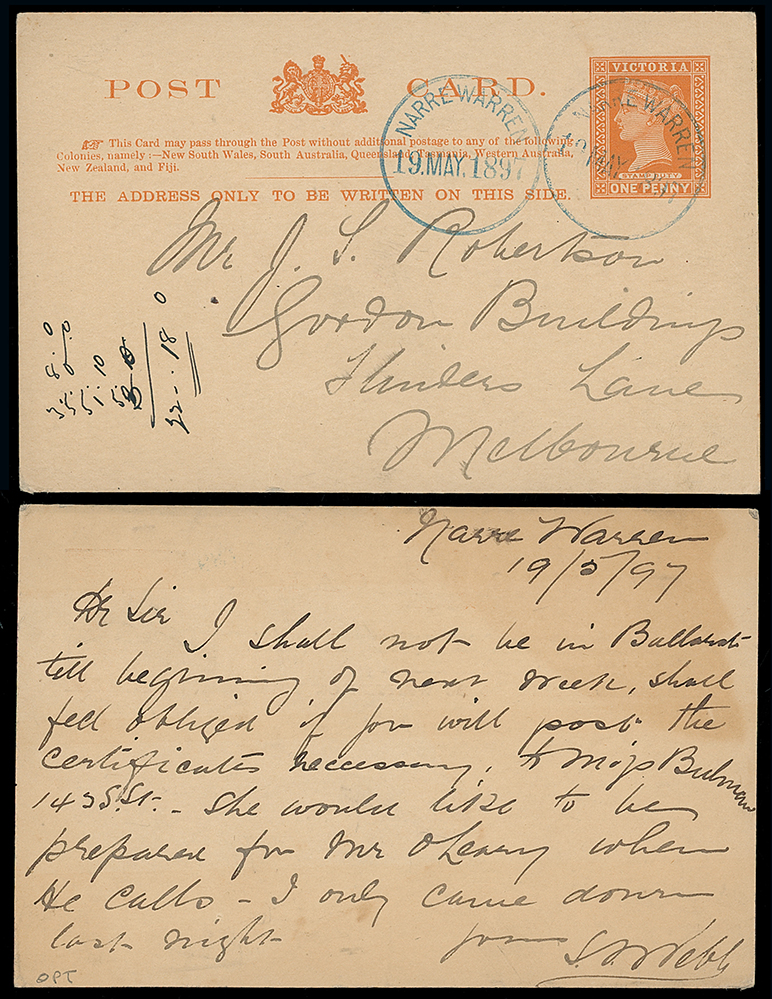 POST CARD.
VICTORIA
STAMP DUTY
ONE PENNY
NARRE WARREN
19.MAY.1897
NARRE WARREN
MAY
This Card may pass through the Post without additional postage to any of the following
Colonies, namely :—New South Wales, South Australia, Queensland, Tasmania, Western Australia,
New Zealand, and Fiji.
THE ADDRESS ONLY TO BE WRITTEN ON THIS SIDE.
Mr J. S. Robertson
Gordon Buildings
Flinders Lane
Melbourne
22 . 18 0
Narre Warren
19/5/97
Dr Sir I shall not be in Ballarat
till beginning of next week, shall
feel obliged if you will post the
certificates necessary, to Miss Bulman
143 S. St. - She would like to be
prepared for Mr O'Leary when
He calls - I only came down
last night yours S. Webb
OPT